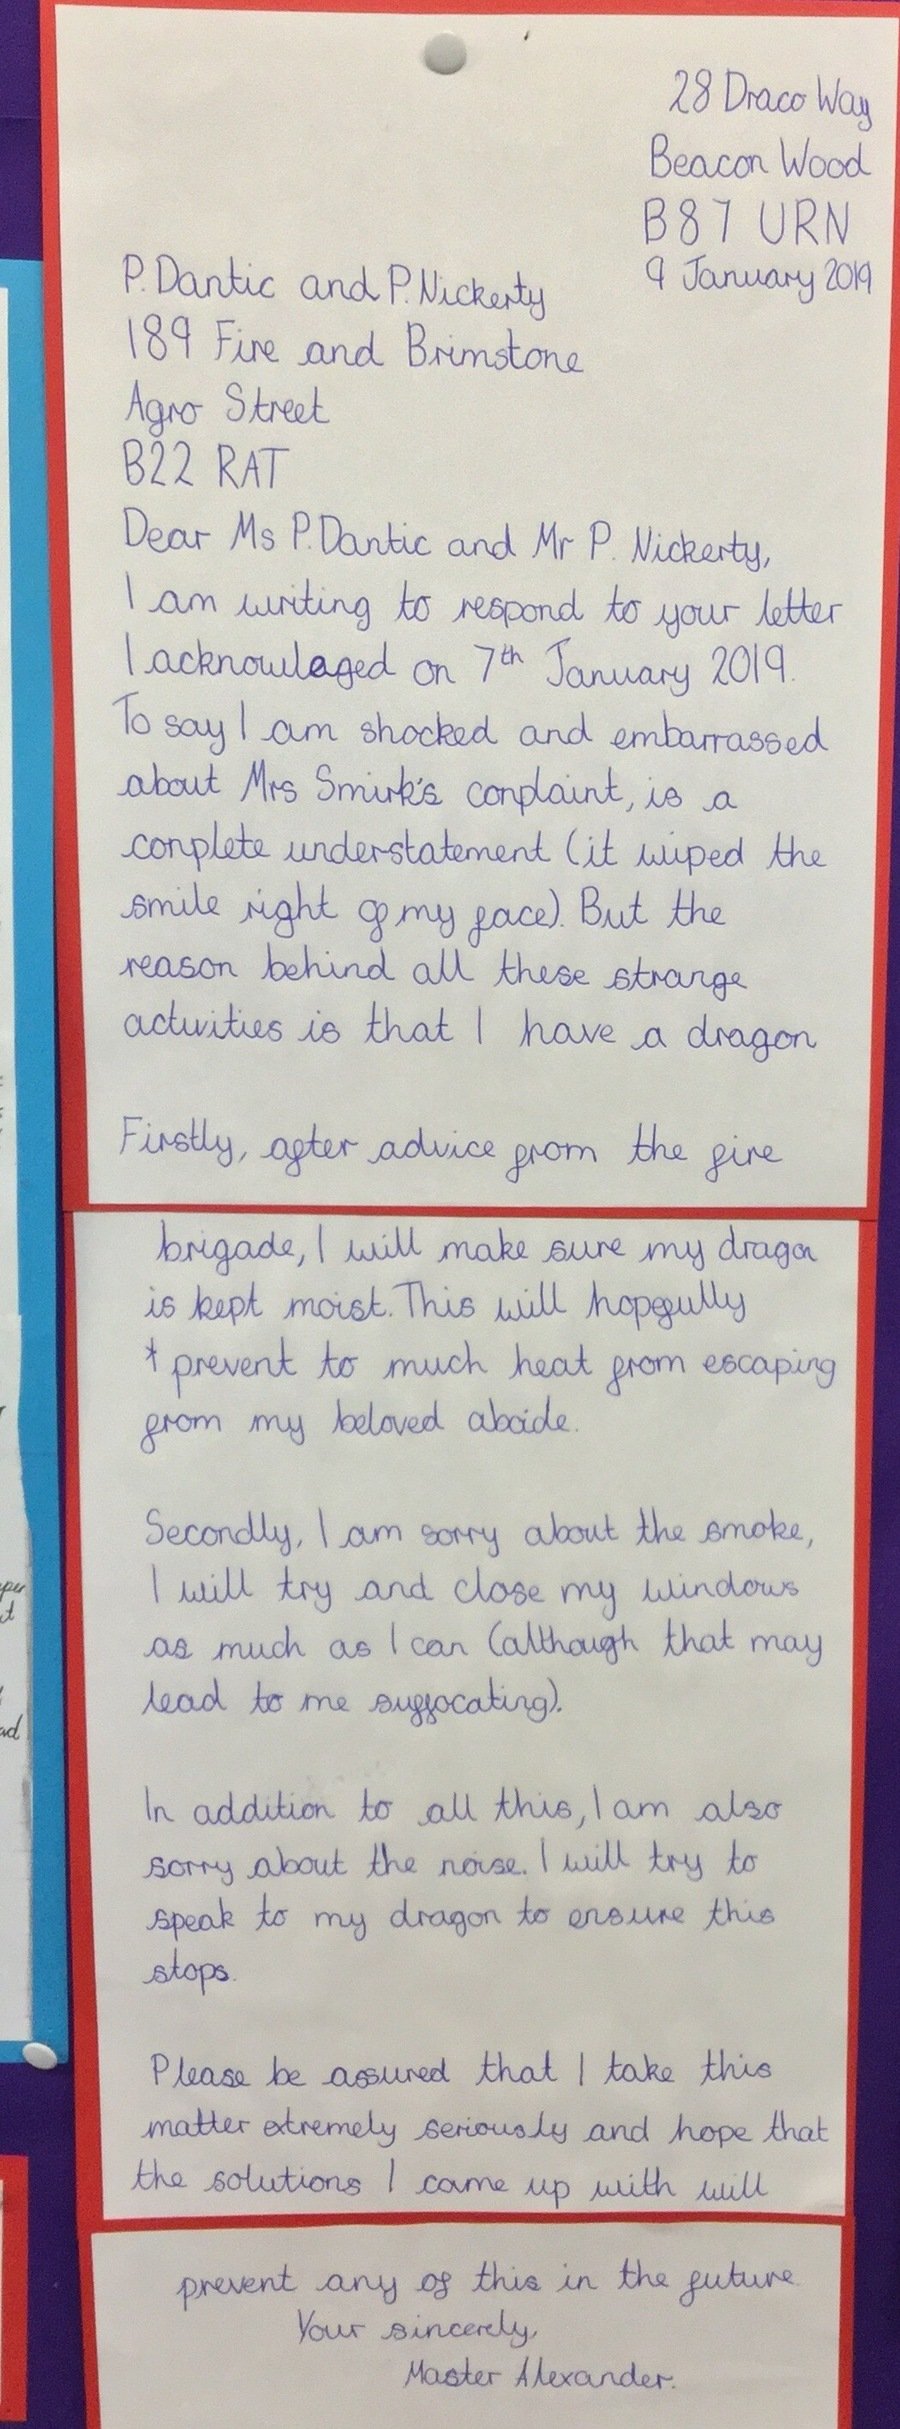 28 Draco Way
Beacon Wood
B87 URN
9 January 2019
P. Dantic and P. Nickerty
189 Fire and Brimstone
Agro Street
B22 RAT
Dear Ms P. Dantic and Mr P. Nickerty,
I am writing to respond to your letter
I acknowlaged on 7th January 2019.
To say I am shocked and embarrassed
about Mrs Smirk's conplaint, is a
conplete understatement (it wiped the
smile right of my face). But the
reason behind all these strange
activities is that I have a dragon
Firstly, after advice from the fire
brigade, I will make sure my dragon
is kept moist. This will hopefully
* prevent to much heat from escaping
from my beloved abode.
Secondly, I am sorry about the smoke,
I will try and close my windows
as much as I can (although that may
lead to me suffocating).
In addition to all this, I am also
sorry about the noise. I will try to
speak to my dragon to ensure this
stops.
Please be assured that I take this
matter extremely seriously and hope that
the solutions I came up with will
prevent any of this in the future.
Your sincerely,
Master Alexander.